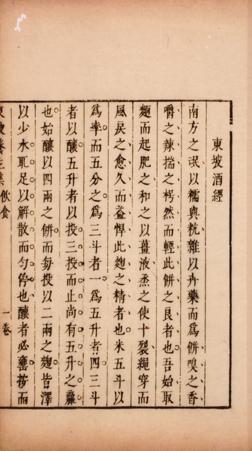 東坡酒經
南方之氓以糯與秔雜以卉藥而爲餅嗅之香
嚼之辣揣之枵然而輕此餅之良者也吾始取
麵而起肥之和之以薑液烝之使十裂繩穿而
風戾之愈久而益悍此麴之精者也米五斗以
爲率而五分之爲三斗者一爲五升者四三斗
者以釀五升者以投三投而止尚有五升之贏
也始釀以四兩之餅而每投以二兩之麴皆澤
以少水取足以解散而勻停也釀者必甕按而
飲食
一卷